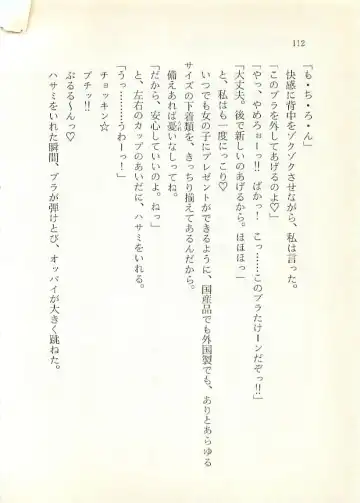 112
「も・ち・ろ・ん」
快感に背中をゾクゾクさせながら、私は言った。
「このブラを外してあげるのよ♡」
「やっ、やめろォーっ!!　ばかっ!　こっ……このブラたけーンだぞっ!!」
「大丈夫。後で新しいのあげるから。ほほほっ」
と、私はも一度にっこり♡
いつでも女の子にプレゼントができるように、国産品でも外国製でも、ありとあらゆる
サイズの下着類を、きっちり揃えてあるんだから。
備えあれば憂いなしってね。
「だから、安心していいのよ。ねっ」
と、左右のカップのあいだに、ハサミをいれる。
「うっ………うわーっ!」
チョッキン☆
プチッ!!
ぷるる〜んっ♡
ハサミをいれた瞬間、ブラが弾けとび、オッパイが大きく跳ねた。